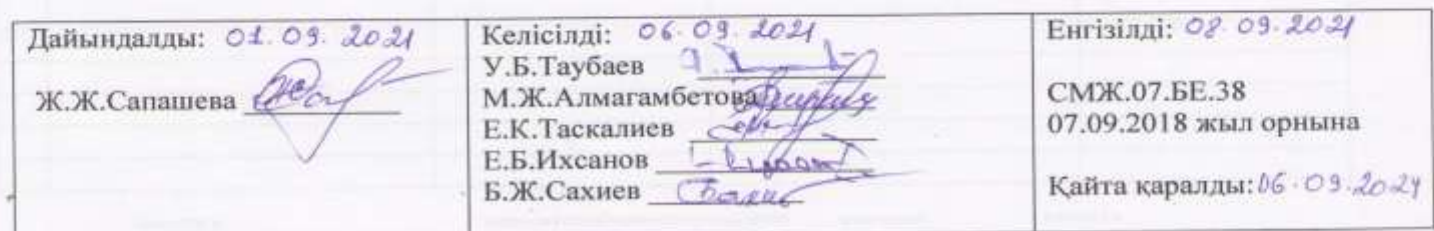 Дайындалды: 01.09.2021
Ж.Ж.Сапашева
Келісілді: 06.09.2021
У.Б.Таубаев
М.Ж.Алмагамбетова
Е.К.Таскалиев
Е.Б.Ихсанов
Б.Ж.Сахиев
Енгізілді: 08.09.2021
СМЖ.07.БЕ.38
07.09.2018 жыл орнына
Қайта қаралды: 06.09.2024